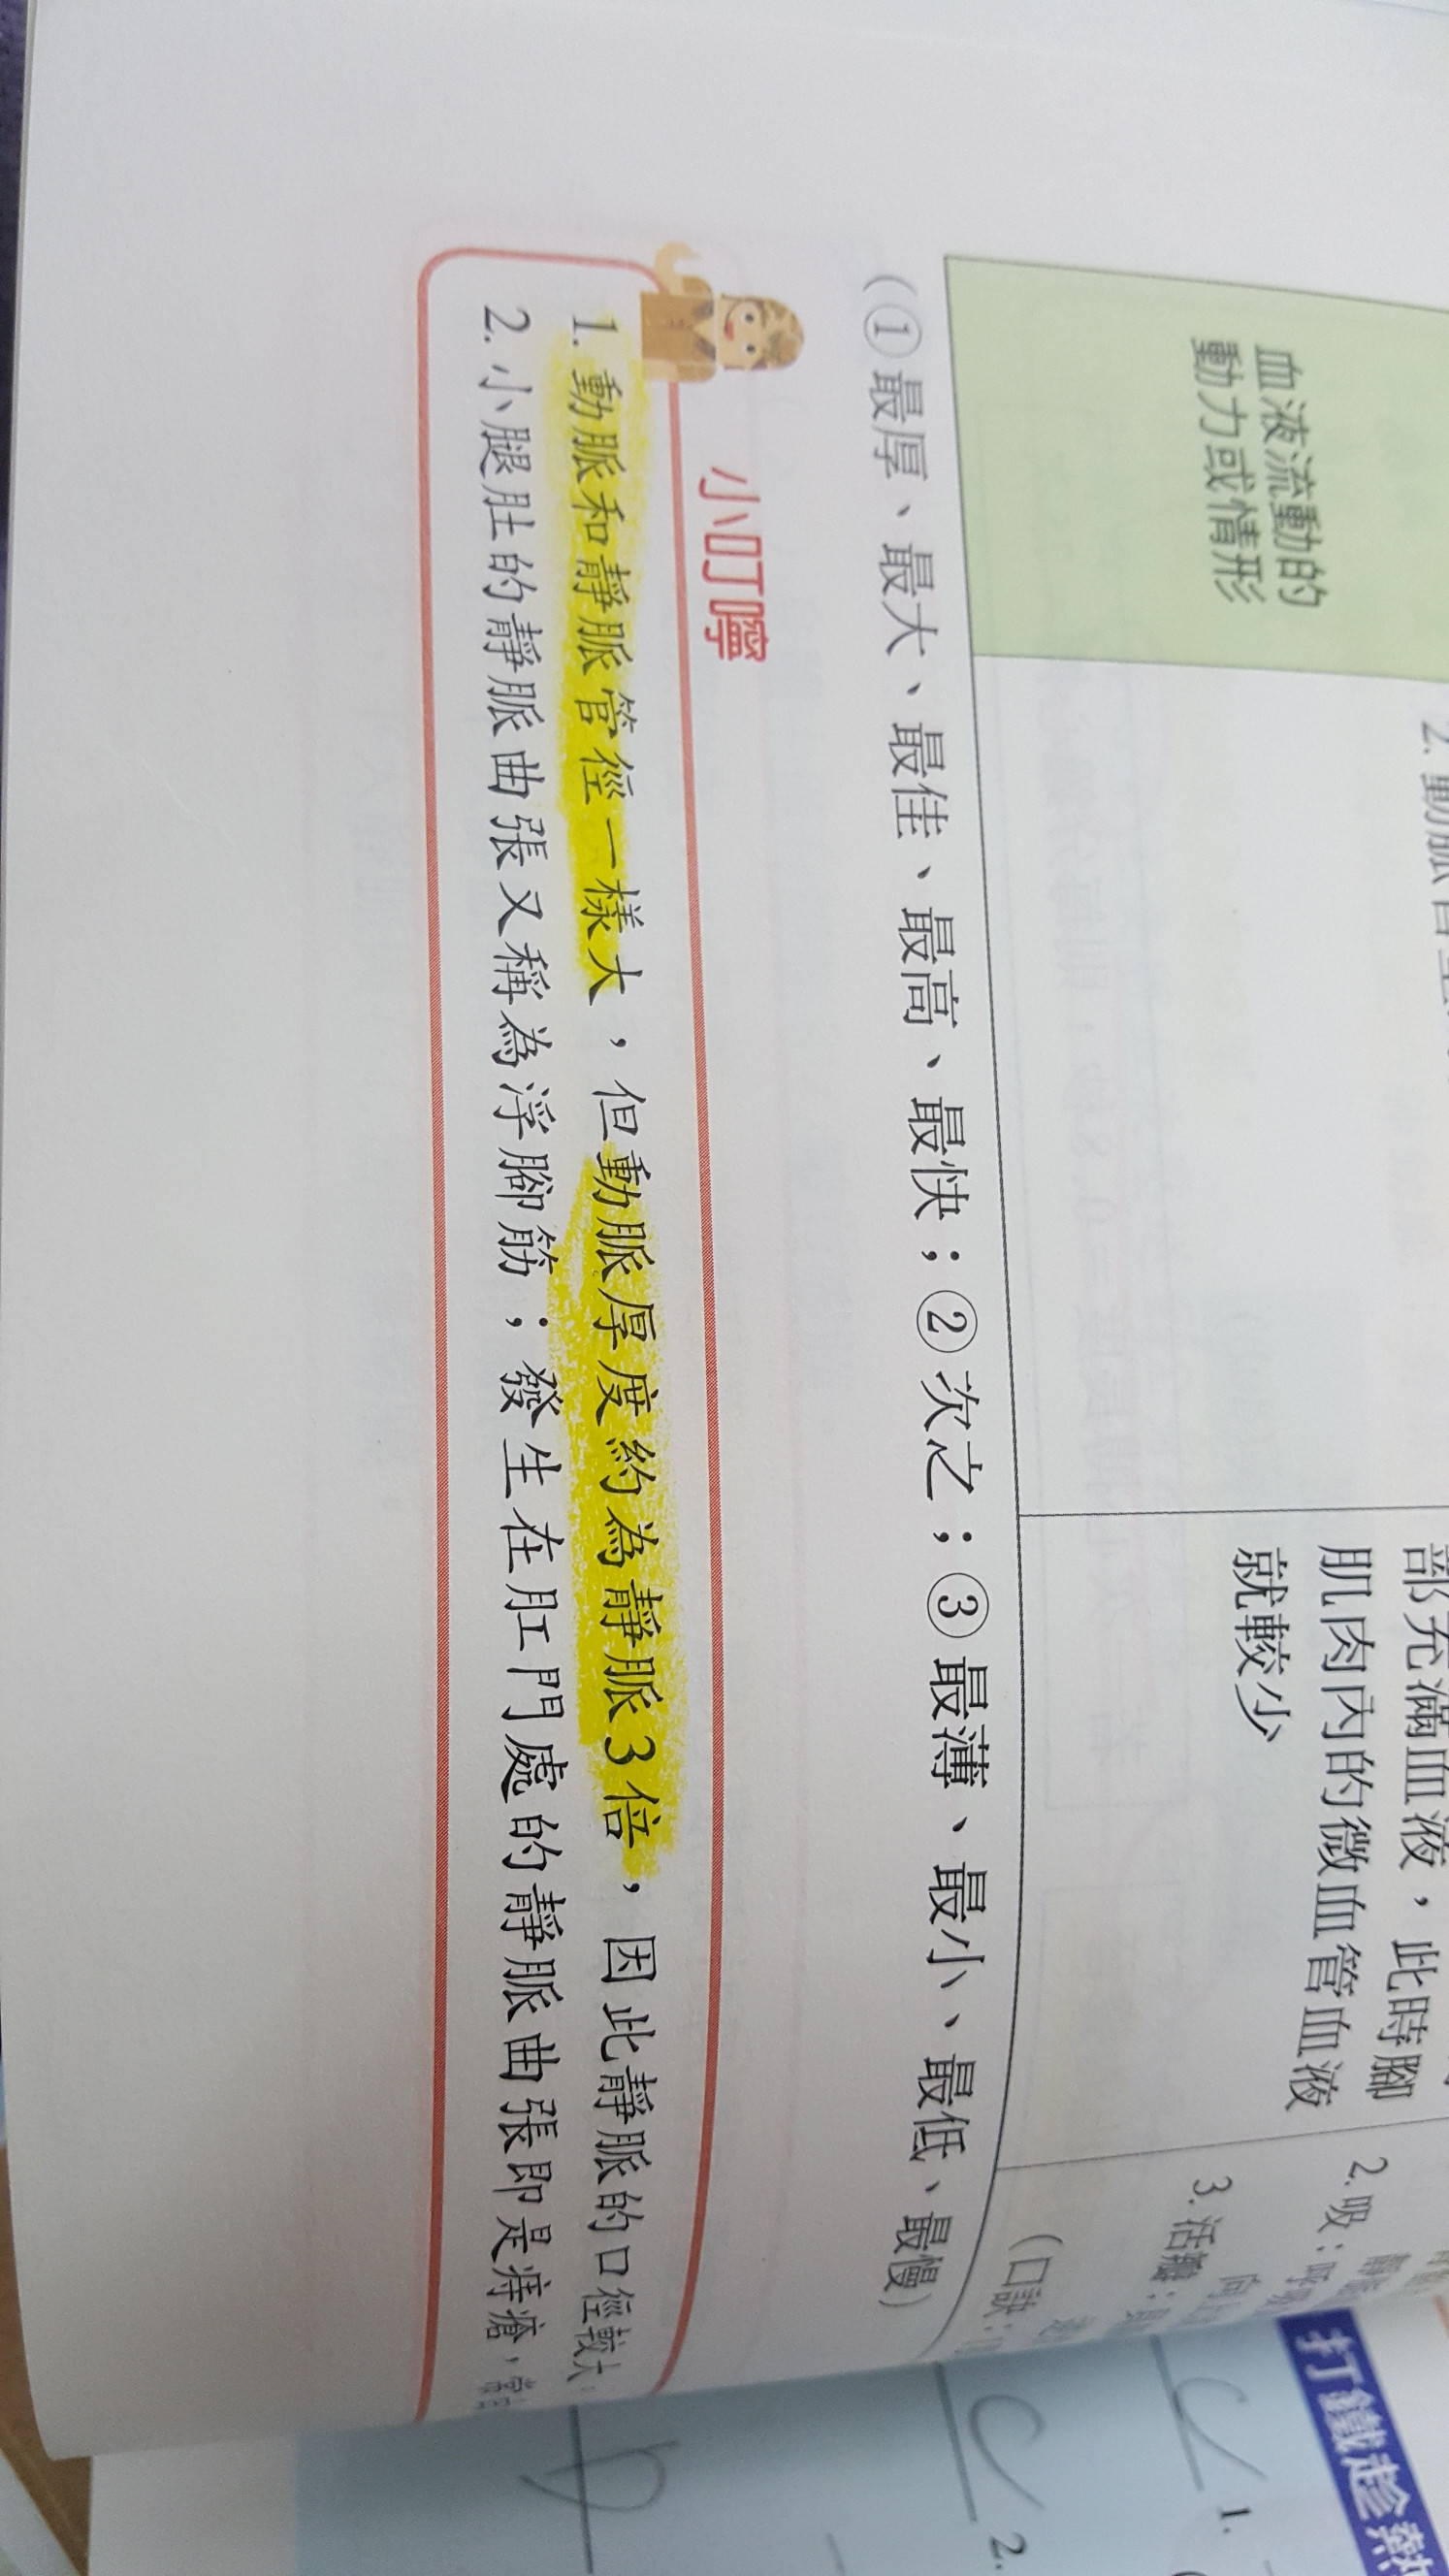 2. 動脈管
血液流動的
動力或情形
部充滿血液，此時腳
肌肉內的微血管血液
就較少
2. 吸：呼吸
3. 活瓣：
向
(口訣：
(①最厚、最大、最佳、最高、最快；②次之；③最薄、最小、最低、最慢)
小叮嚀
1. 動脈和靜脈管徑一樣大，但動脈厚度約為靜脈3倍，因此靜脈的口徑較大。
2. 小腿肚的靜脈曲張又稱為浮腳筋；發生在肛門處的靜脈曲張即是痔瘡，常
打鐵趁熱
1.
2.